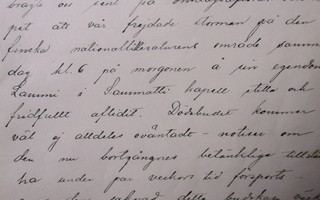 bragte oss sent på
pet att vår frejdade storman på den
finska nationallitteraturens område samma
dag kl. 6 på morgonen å sin egendom
Lammi i Sammatti kapell stilla och
fridfullt aflidit. Dödsbudet kommer
väl ej alldeles oväntadt – notisen om
den nu bortgångnes betänkliga tillstån
ha under par veckors tid försports –
detta budskap väck